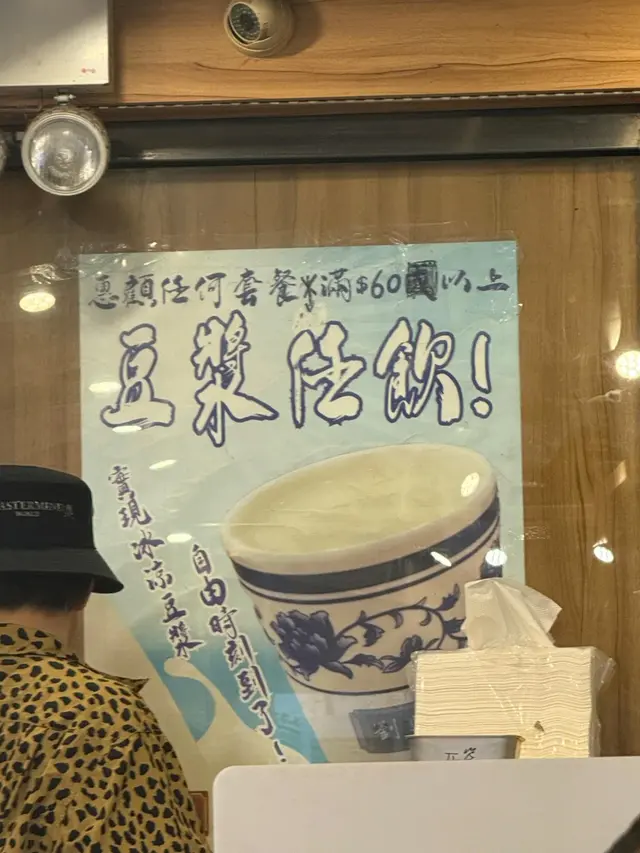 惠顧任何套餐滿$60以上
豆漿任飲!
實現冰涼豆漿
自由時刻到了!
劉
WORLD